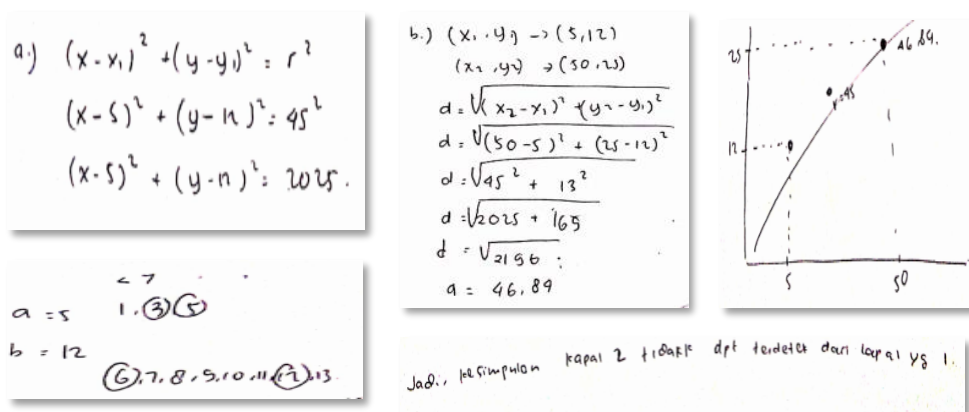 a.) (x-x₁)² + (y-y₁)² = r²
(x-5)² + (y-12)² = 45²
(x-5)² + (y-12)² = 2025.
< 7
a = 5 1, 3, 5
b = 12
6, 7, 8, 9, 10, 11, 12, 13
b.) (x₁, y₁) → (5,12)
(x₂, y₂) → (50,25)
d = √(x₂-x₁)² + (y₂-y₁)²
d = √(50-5)² + (25-12)²
d = √45² + 13²
d = √2025 + 165
d = √2196
a = 46,89
25
46,89.
r=45
12
5 50
Jadi, kesimpulan kapal 2 tidakk dpt terdetek dari kapal yg 1.